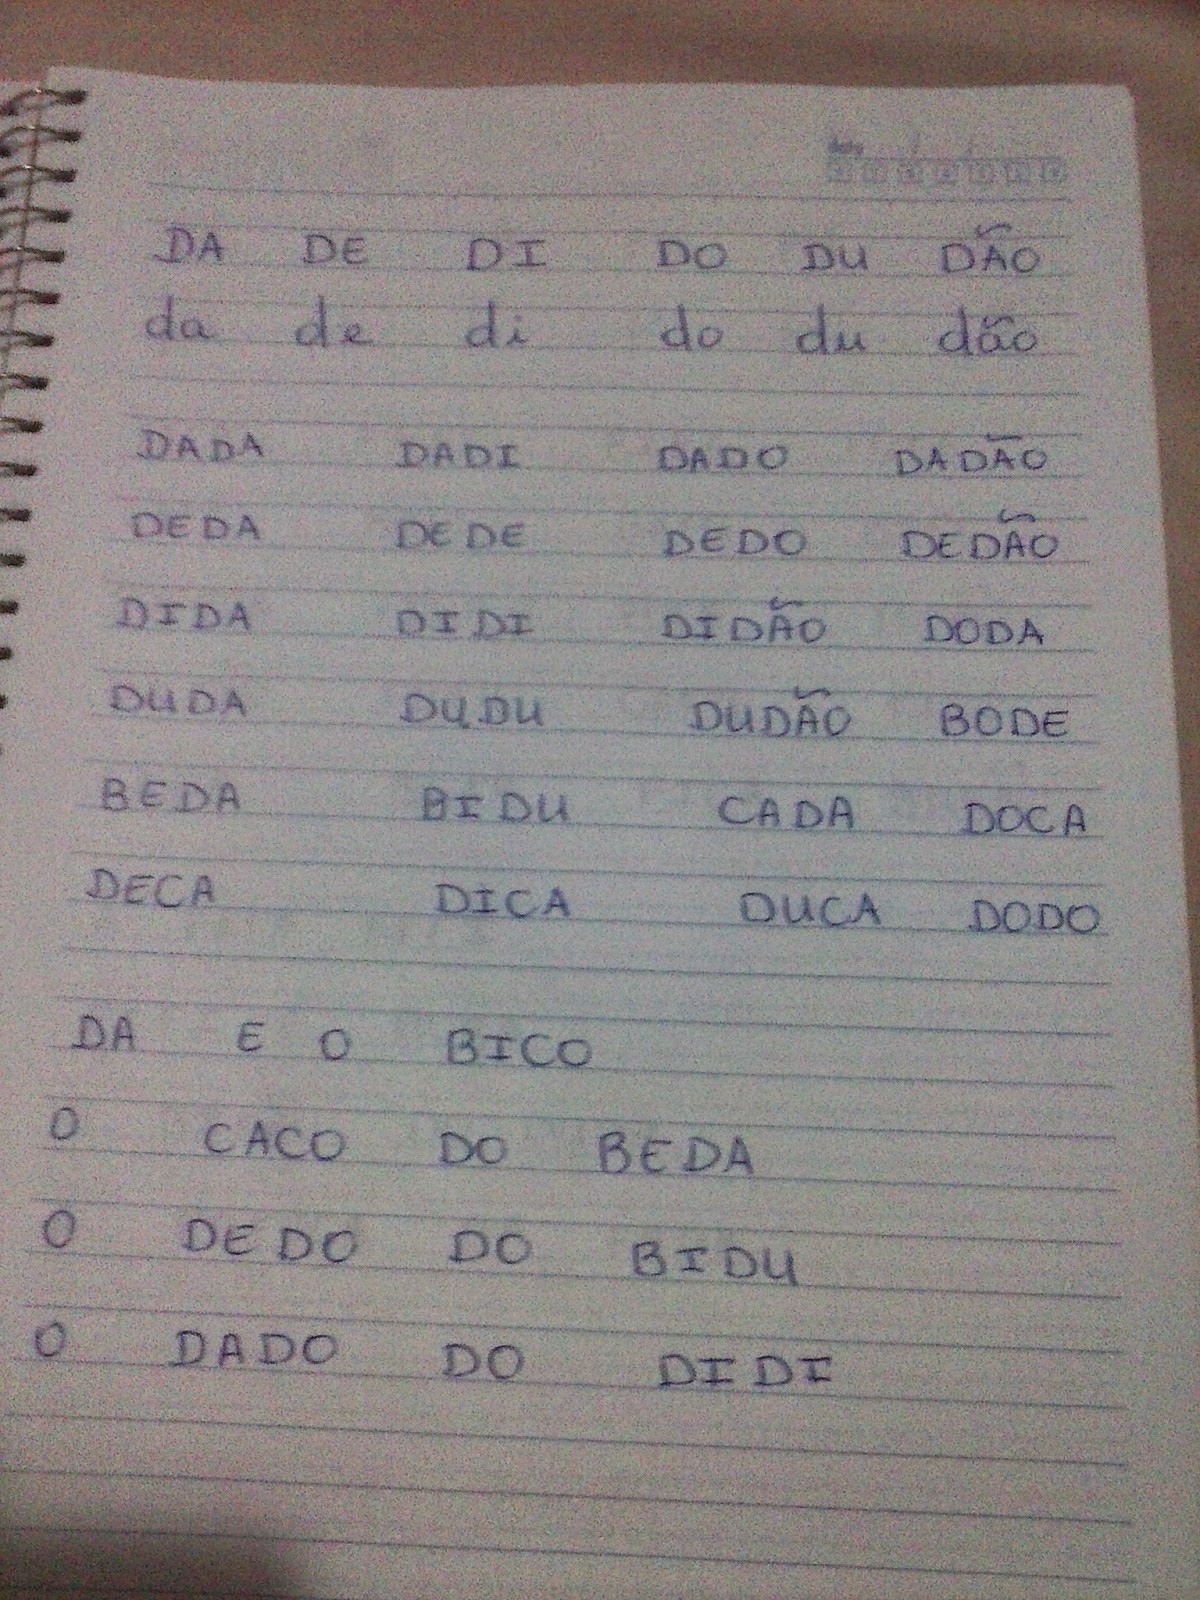 DA DE DI DO DU DÃO
da de di do du dão
DADA DADI DADO DADÃO
DEDA DEDE DEDO DEDÃO
DIDA DIDI DIDÃO DODA
DUDA DUDU DUDÃO BODE
BEDA BIDU CADA DOCA
DECA DICA DUCA DODO
DA E O BICO
O CACO DO BEDA
O DEDO DO BIDU
O DADO DO DIDI